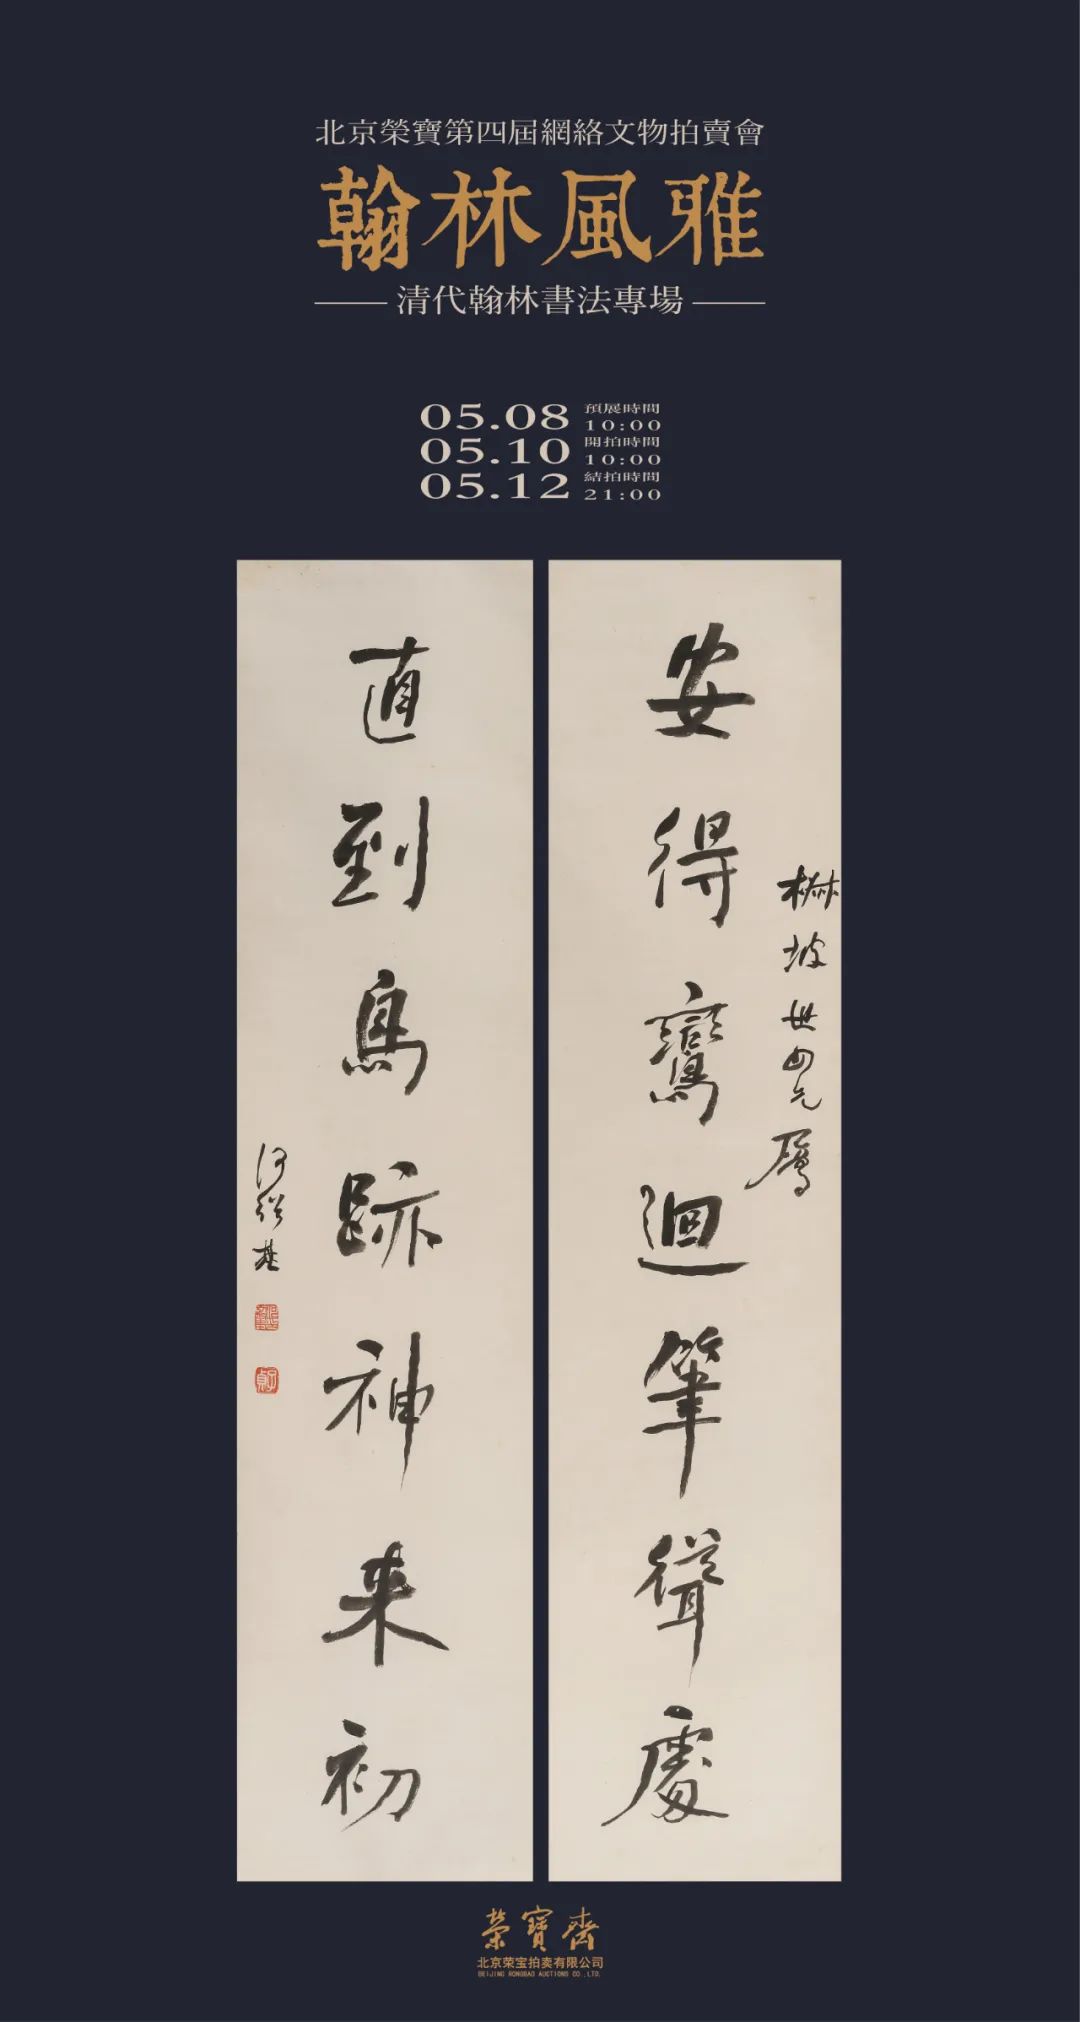 北京榮寶第四屆網絡文物拍賣會
翰林風雅
清代翰林書法專場
05.08 預展時間 10:00
05.10 開拍時間 10:00
05.12 結拍時間 21:00
安得鸞迴筆聳處
坡世四兄屬
直到鳥跡神来初
何紹基
榮寶齋
北京荣宝拍卖有限公司
BEIJING RONGBAO AUCTIONS CO.,LTD.